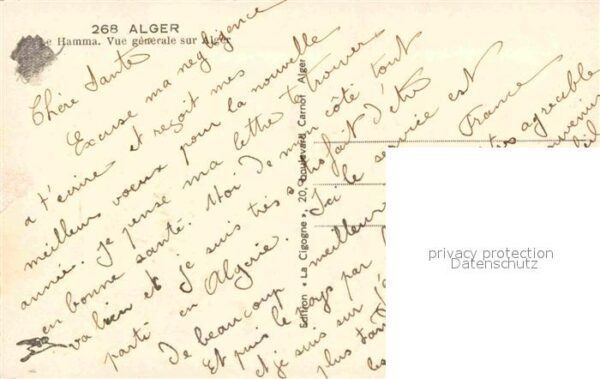 268 ALGER
Le Hamma. Vue générale sur Alger
Chère Tante
Excuse ma negligence
a t'écrire et reçoit mes
meilleurs voeux pour la nouvelle
année. Je pense ma lettre te trouver
en bonne santé. Moi de mon côté tout
va bien et je suis très satisfait d'être
parti en Algérie. Ici le service est
de beaucoup meilleur
France
Et puis le pays par
très agréable
et je suis sur
plus tard
les
Edition « La Cigogne », 20, boulevard Carnot Alger
privacy protection
Datenschutz